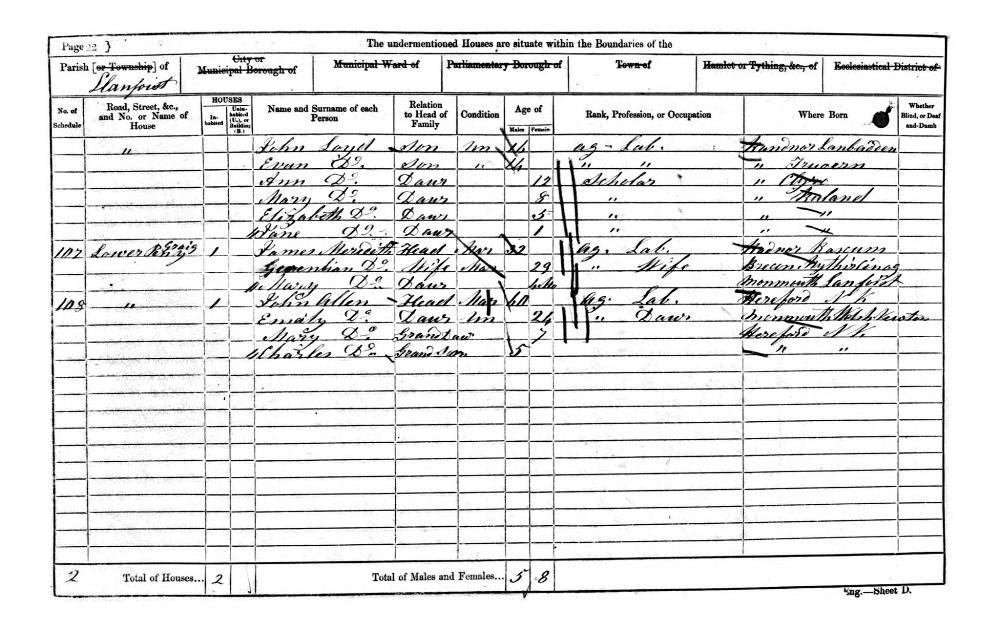 Page 22 } The undermentioned Houses are situate within the Boundaries of the
Parish [or Township] of City or Municipal Borough of Municipal Ward of Parliamentary Borough of Town of Hamlet or Tything, &c., of Ecclesiastical District of
Llanfoist
No. of Schedule Road, Street, &c., and No. or Name of House HOUSES Inhabited Uninhabited (U.), or Building (B.) Name and Surname of each Person Relation to Head of Family Condition Age of Males Females Rank, Profession, or Occupation Where Born Whether Blind, or Deaf-and-Dumb
" John Loyd Son Un 16 ag - Lab. Lanbadden
Evan Do. Son " 14 " " "
Ann Do. Dawr 12 Scholar "
Mary Do. Dawr 8 " "
Elizabeth Do. Dawr 5 " " "
Jane Do. Dawr 1 " " "
107 Lower 1 James Meredith Head Mar 32 ag. Lab.
Do. Wife Mar 29 " Wife
Mary Do. Dawr Monmouth Lanfoist
108 " 1 John Allen Head Mar 60 ag. Lab. Hereford N K
Emily Do. Dawr Un 24 " Dawr Monmouth
Mary Do. Grand Dawr 7 Hereford N K
Charles Do. Grand Son 5 " "
2 Total of Houses... 2 Total of Males and Females... 5 8
Eng.—Sheet D.